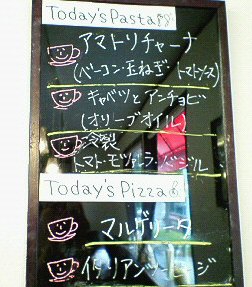 Today's Pasta
アマトリチャーナ
(ベーコン・玉ねぎ・トマトソース)
キャベツとアンチョビ
(オリーブオイル)
冷製
トマト・モッツァレラ・バジル
Today's Pizza
マルゲリータ
イタリアンソーセージ